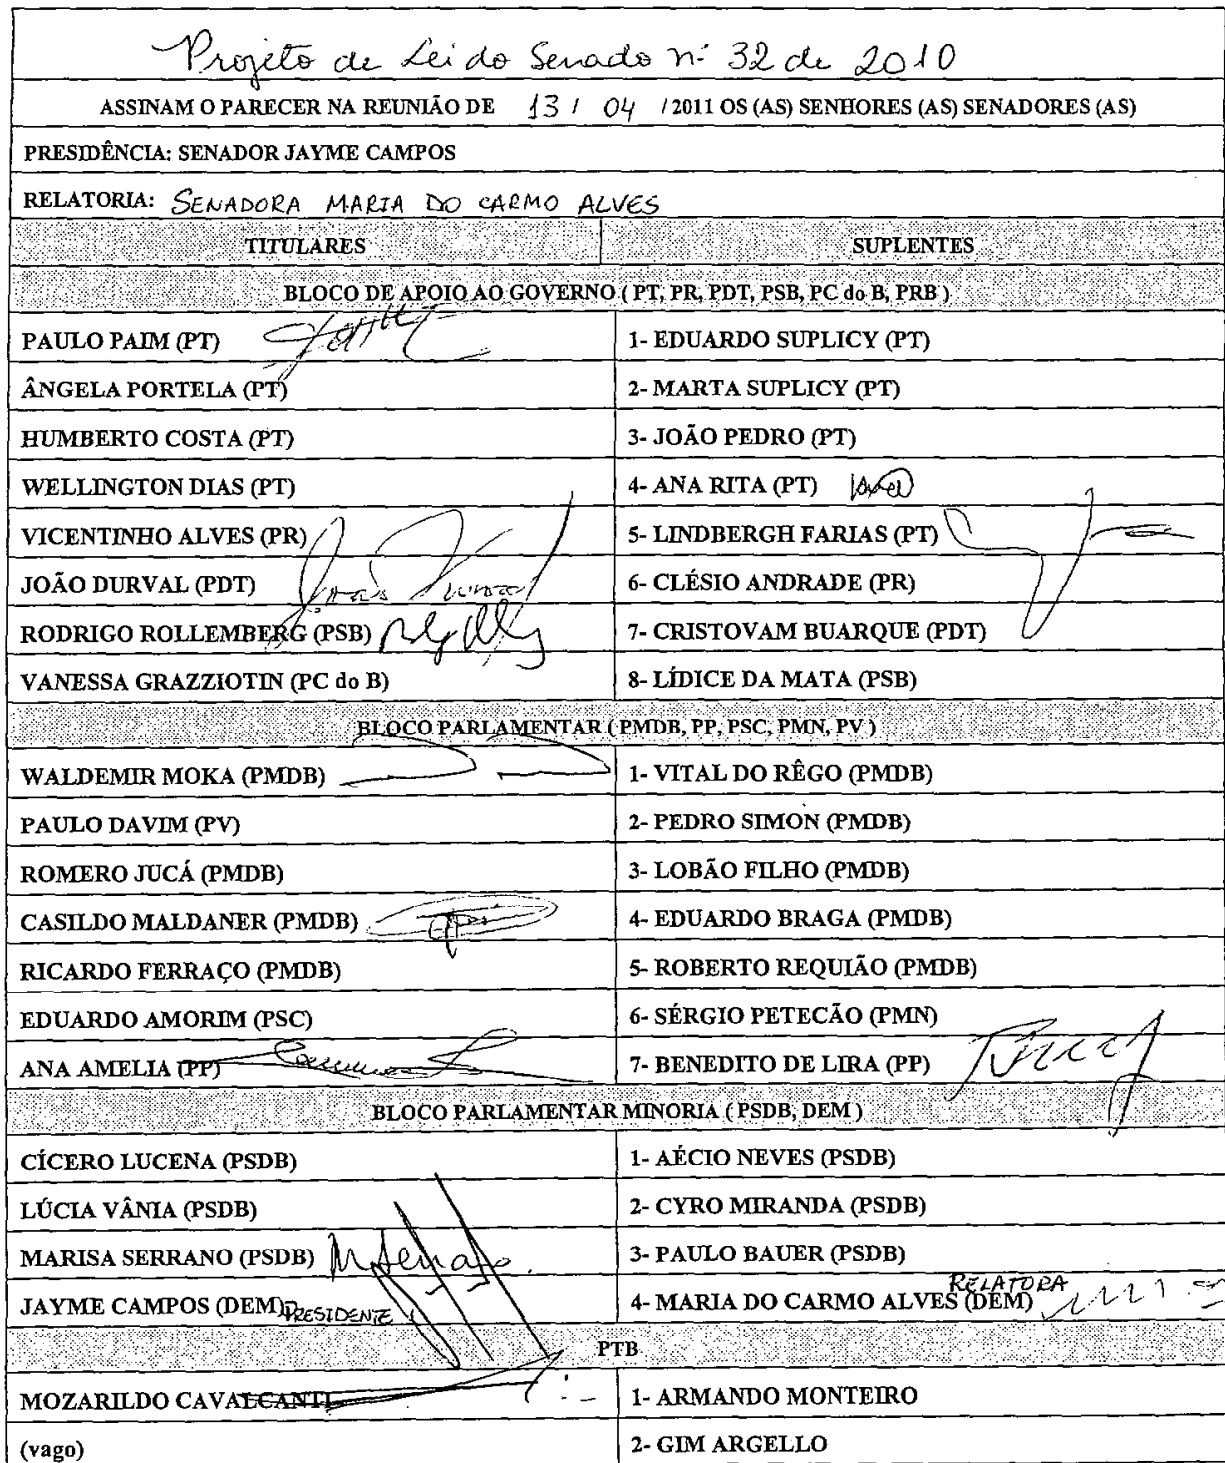 Projeto de Lei do Senado nº 32 de 2010
ASSINAM O PARECER NA REUNIÃO DE 13 / 04 / 2011 OS (AS) SENHORES (AS) SENADORES (AS)
PRESIDÊNCIA: SENADOR JAYME CAMPOS
RELATORIA: SENADORA MARIA DO CARMO ALVES
TITULARES SUPLENTES
BLOCO DE APOIO AO GOVERNO ( PT, PR, PDT, PSB, PC do B, PRB )
PAULO PAIM (PT) 1- EDUARDO SUPLICY (PT)
ÂNGELA PORTELA (PT) 2- MARTA SUPLICY (PT)
HUMBERTO COSTA (PT) 3- JOÃO PEDRO (PT)
WELLINGTON DIAS (PT) 4- ANA RITA (PT)
VICENTINHO ALVES (PR) 5- LINDBERGH FARIAS (PT)
JOÃO DURVAL (PDT) João Durval 6- CLÉSIO ANDRADE (PR)
RODRIGO ROLLEMBERG (PSB) 7- CRISTOVAM BUARQUE (PDT)
VANESSA GRAZZIOTIN (PC do B) 8- LÍDICE DA MATA (PSB)
BLOCO PARLAMENTAR ( PMDB, PP, PSC, PMN, PV )
WALDEMIR MOKA (PMDB) 1- VITAL DO RÊGO (PMDB)
PAULO DAVIM (PV) 2- PEDRO SIMON (PMDB)
ROMERO JUCÁ (PMDB) 3- LOBÃO FILHO (PMDB)
CASILDO MALDANER (PMDB) 4- EDUARDO BRAGA (PMDB)
RICARDO FERRAÇO (PMDB) 5- ROBERTO REQUIÃO (PMDB)
EDUARDO AMORIM (PSC) 6- SÉRGIO PETECÃO (PMN)
ANA AMELIA (PP) 7- BENEDITO DE LIRA (PP)
BLOCO PARLAMENTAR MINORIA ( PSDB, DEM )
CÍCERO LUCENA (PSDB) 1- AÉCIO NEVES (PSDB)
LÚCIA VÂNIA (PSDB) 2- CYRO MIRANDA (PSDB)
MARISA SERRANO (PSDB) MSerrano. 3- PAULO BAUER (PSDB)
JAYME CAMPOS (DEM) PRESIDENTE 4- MARIA DO CARMO ALVES (DEM) RELATORA
PTB
MOZARILDO CAVALCANTI 1- ARMANDO MONTEIRO
(vago) 2- GIM ARGELLO